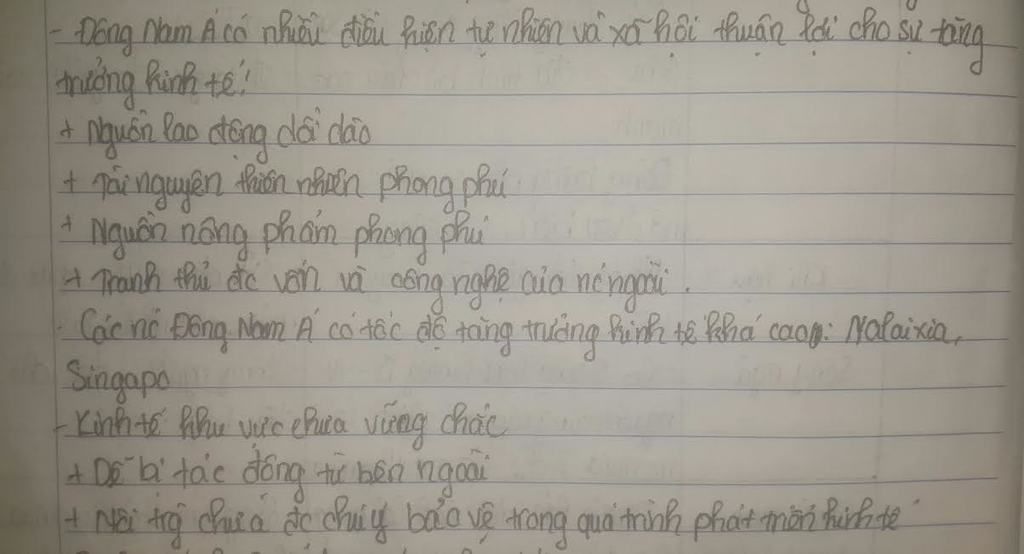 - Đông Nam Á có nhiều điều kiện tự nhiên và xã hội thuận lợi cho sự tăng
trưởng kinh tế:
+ Nguồn lao động dồi dào
+ Tài nguyên thiên nhiên phong phú
+ Nguồn nông phẩm phong phú
+ Tranh thủ đc vốn và công nghệ của nc ngoài.
- Các nc Đông Nam Á có tốc độ tăng trưởng kinh tế khá cao: Malaixia,
Singapo
- Kinh tế khu vực chưa vững chắc
+ Dễ bị tác động từ bên ngoài
+ Môi trg chưa đc chú ý bảo vệ trong quá trình phát triển kinh tế